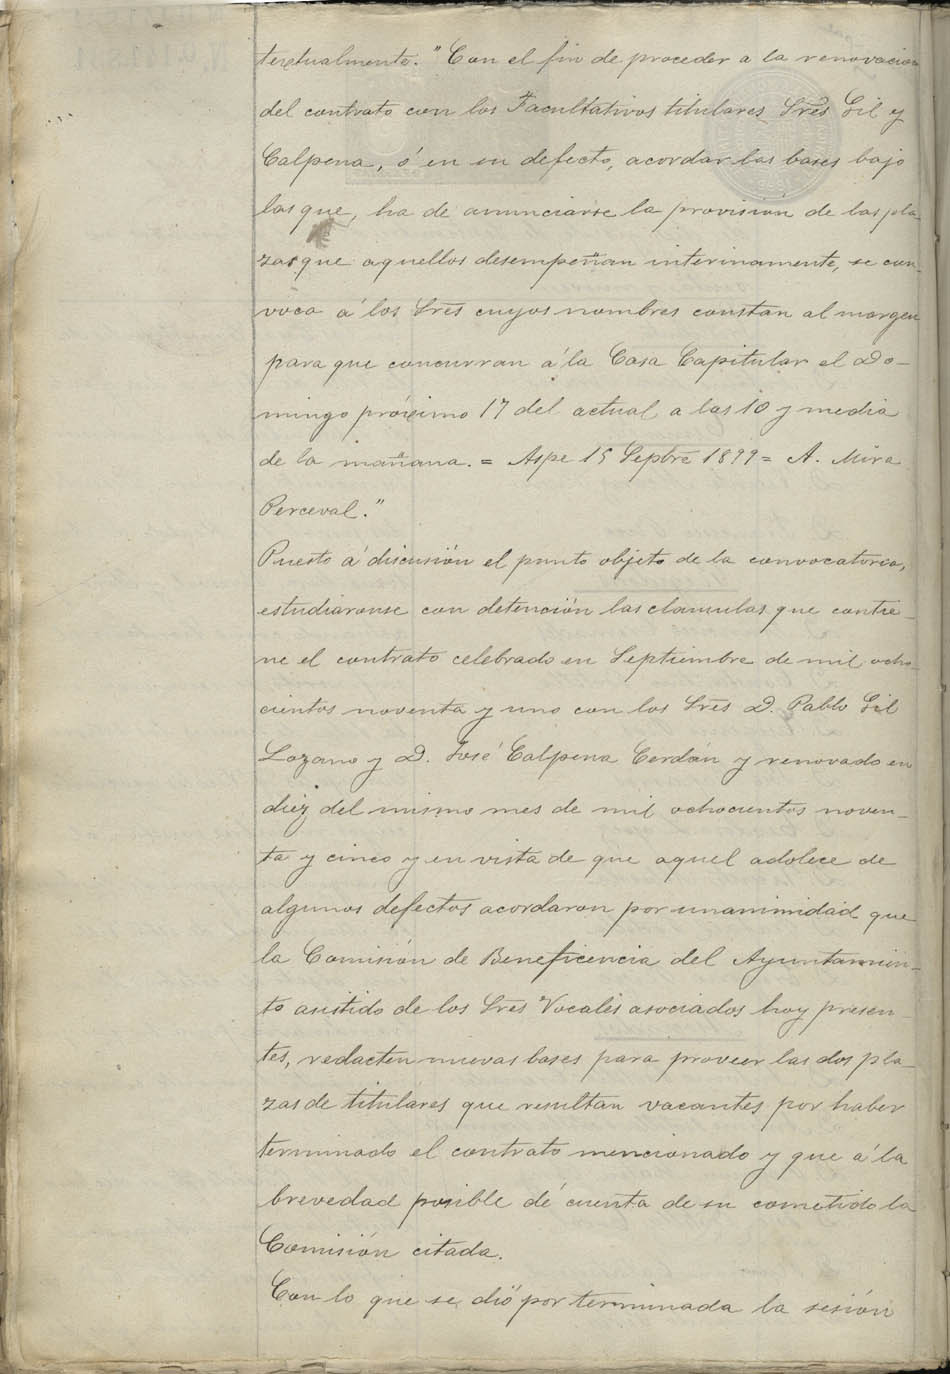 textualmente: "Con el fin de proceder a la renovacion
del contrato con los Facultativos titulares Sres Gil y
Calpena, ó en su defecto, acordar las bases bajo
las que, ha de anunciarse la provisión de las pla-
zas que aquellos desempeñan interinamente, se con-
voca á los Sres cuyos nombres constan al margen
para que concurran á la Casa Capitular el Do-
mingo próximo 17 del actual a las 10 y media
de la mañana. = Aspe 15 Sepbre 1899 = A. Mira
Perceval."
Puesto á discusión el punto objeto de la convocatoria,
estudiaronse con detención las clausulas que contie-
ne el contrato celebrado en Septiembre de mil ocho-
cientos noventa y uno con los Sres D. Pablo Gil
Lozano y D. José Calpena Cerdán y renovado en
diez del mismo mes de mil ochocientos noven-
ta y cinco y en vista de que aquel adolece de
algunos defectos acordaron por unanimidad que
la Comisión de Beneficencia del Ayuntamien-
to asistido de los Sres Vocales asociados hoy presen-
tes, redacten nuevas bases para proveer las dos pla-
zas de titulares que resultan vacantes por haber
terminado el contrato mencionado y que á la
brevedad posible dé cuenta de su cometido la
Comisión citada.
Con lo que se dió por terminada la sesión